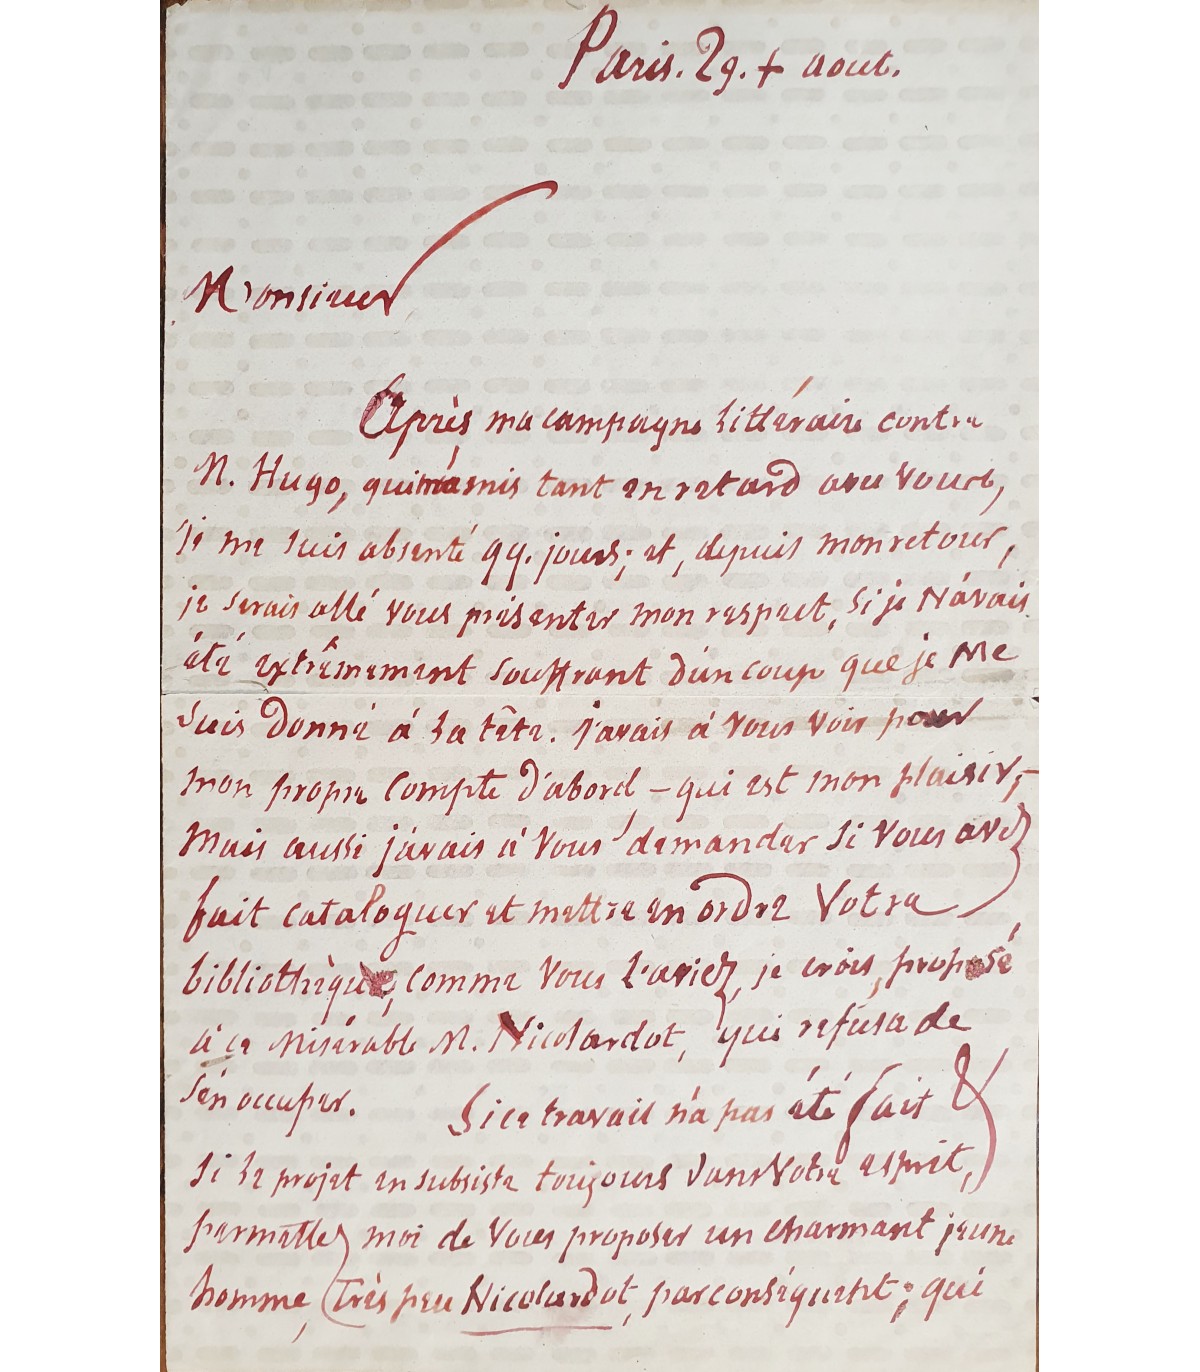 Paris. 29. + aout.
Monsieur
Après ma campagne littéraire contre
M. Hugo, qui m'a mis tant en retard avec vous,
je me suis absenté qq. jours; et, depuis mon retour,
je serais allé vous présenter mon respect, si je n'avais
été extrêmement souffrant d'un coup que je me
suis donné à la tête. J'avais à vous voir pour
mon propre compte d'abord – qui est mon plaisir, –
mais aussi j'avais à vous demander si vous avez
fait cataloguer et mettre en ordre votre
bibliothèque, comme vous l'aviez, je crois, proposé
à ce misérable M. Nicolardot, qui refusa de
s'en occuper. Si ce travail n'a pas été fait &
si le projet en subsiste toujours dans votre esprit,
permettez moi de vous proposer un charmant jeune
homme, (très peu Nicolardot, par conséquent; qui